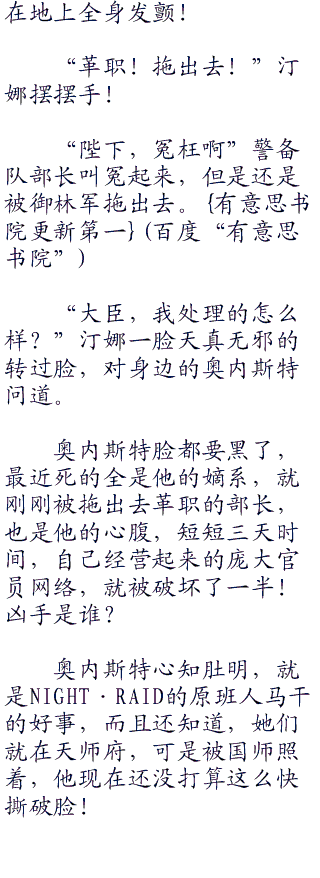 在地上全身发颤！
“革职！拖出去！”汀
娜摆摆手！
“陛下，冤枉啊”警备
队部长叫冤起来，但是还是
被御林军拖出去。{有意思书
院更新第一}(百度“有意思
书院”)
“大臣，我处理的怎么
样？”汀娜一脸天真无邪的
转过脸，对身边的奥内斯特
问道。
奥内斯特脸都要黑了，
最近死的全是他的嫡系，就
刚刚被拖出去革职的部长，
也是他的心腹，短短三天时
间，自己经营起来的庞大官
员网络，就被破坏了一半！
凶手是谁？
奥内斯特心知肚明，就
是NIGHT·RAID的原班人马干
的好事，而且还知道，她们
就在天师府，可是被国师照
着，他现在还没打算这么快
撕破脸！